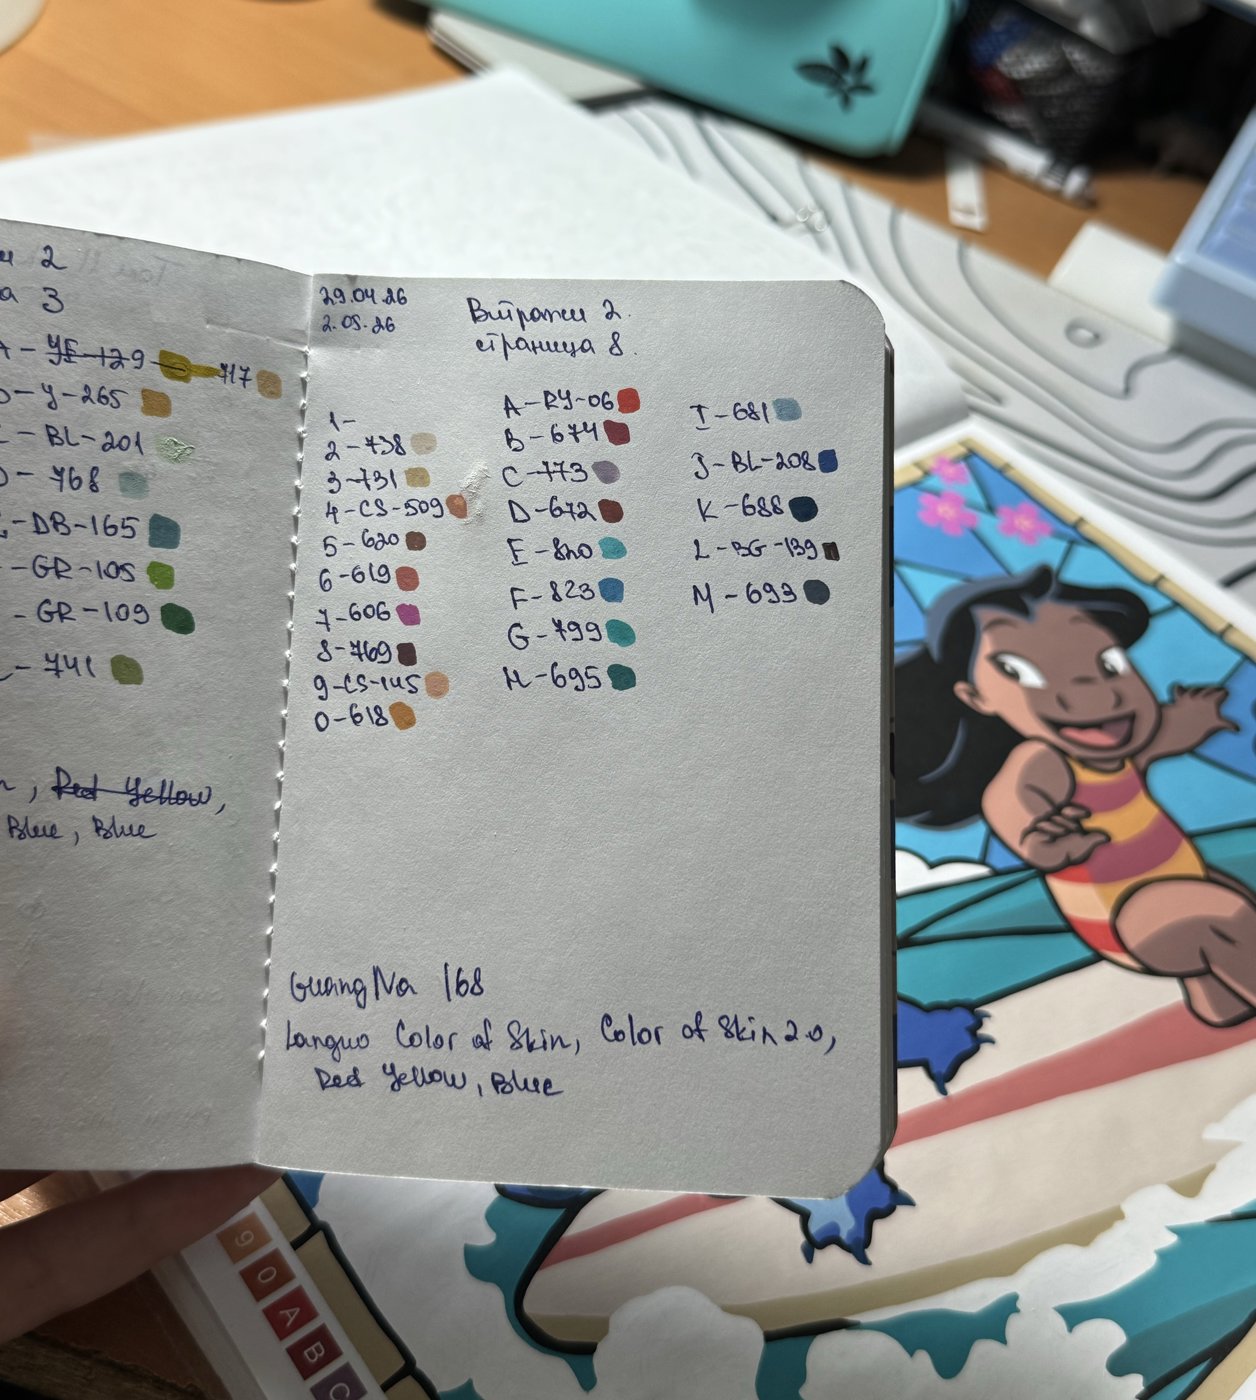 2
3
YE-129 717
Y-265
BL-201
768
DB-165
GR-105
GR-109
741
Red Yellow,
Blue, Blue
29.04.26
2.05.26
Витражи 2.
страница 8.
1-
2-738
3-731
4-CS-509
5-620
6-619
7-606
8-769
9-CS-145
0-618
A-RY-06
B-674
C-773
D-672
E-820
F-823
G-799
H-695
I-681
J-BL-208
K-688
L-BG-139
M-693
GuangNa 168
Languo Color of Skin, Color of Skin 2.0,
Red Yellow, Blue
9
0
A
B
C